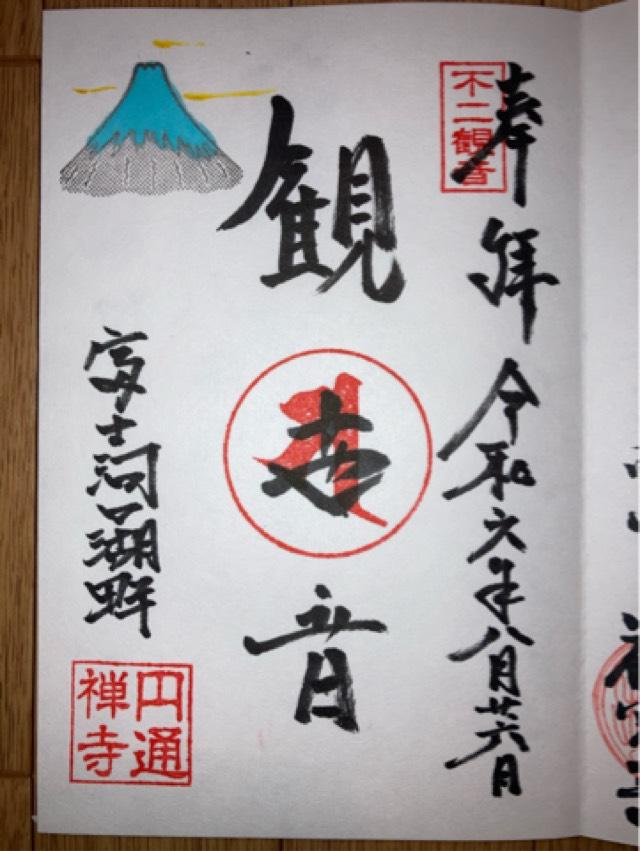 不二観音
奉拝 令和六年八月廿六日
観世音
富士河口湖畔
円通
禅寺